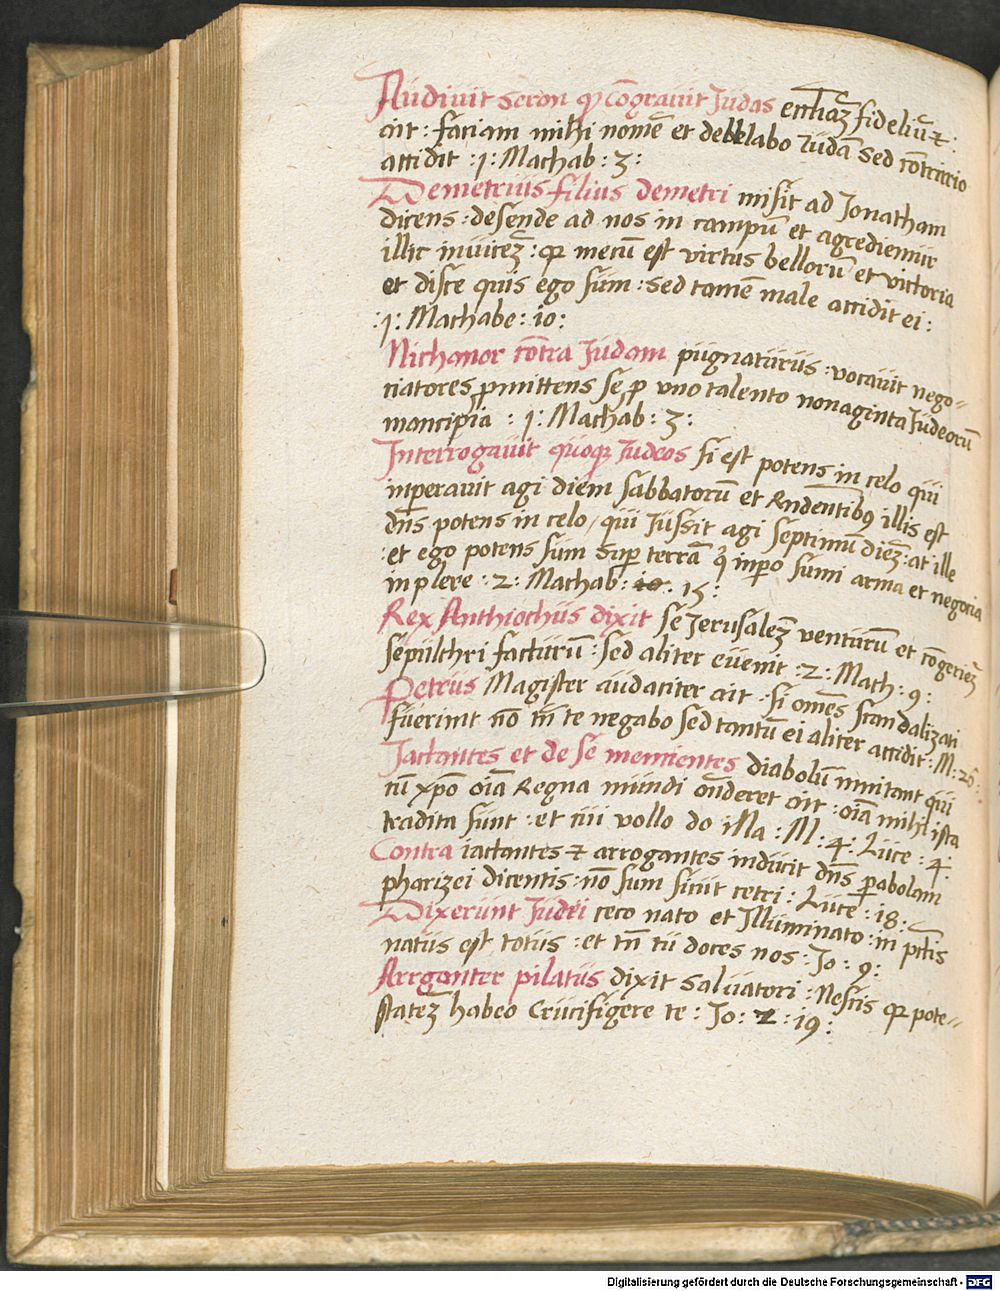 Audiuit Seron qͥ cōgrauit Judas ecclīaȝ fideliūꝝ:
ait: fatiam mihi nomē et debellabo Iudā sed cōtrario
attidit :1: Machab: 3:
Demetrius filius demetri misit ad Jonatham
dicens: desende ad nos in campū et agrediemur
illic inuiceȝ: qꝛ mecū est virtus bellorū et victoria
et disce quis ego sum: sed tamē male attidit ei:
:1: Machabe: 10:
Nichanor cōtra Judam pugnaturus: vocauit nego-
ciatores ꝓmittens se ꝑ vno talento nonaginta Judeorū
mancipia : 1: Machab: 3:
Interrogauit quoqꝫ Judeos si est potens in celo qui
inperauit agi diem sabbatorū et Rndentibꝰ illis est
dn̄s potens in celo, qui Jussit agi septimū dieȝ: at ille
:et ego potens sum sup terrā qͥ inpo sumi arma et negoria
inplere :2: Machab: 15:
Rex Anthiochus dixit se Jerusaleȝ venturū et cōgerieȝ
sepulchri facturū: sed aliter euenit :2: Mach: 9:
Petrus Magister audaciter ait: si om̄es scandalizati
fuerint nō tn̄ te negabo sed tantū ei aliter attidit: M: 26:
Jactantes et de se mentientes diabolū imitant qui
cū xp̄o oīa Regna mundi on̄deret ait: oīa mihi ista
tradita sunt: et cui vollo do illa: M: 4: Luce: 4:
Contra iactantes et arrogantes inducit dn̄s ꝑabolam
pharizei dicentis: nō sum sicut cetri: Luce: 18:
Dixerunt Judei ceco nato et Illuminato: in pc̄tis
natus est totus: et tn̄ tu doces nos: Jo: 9:
Arrganter pilatus dixit Saluatori: Nescis qꝛ pote-
stateȝ habeo Crucifigere te: Jo: 19:
Digitalisierung gefördert durch die Deutsche Forschungsgemeinschaft - DFG